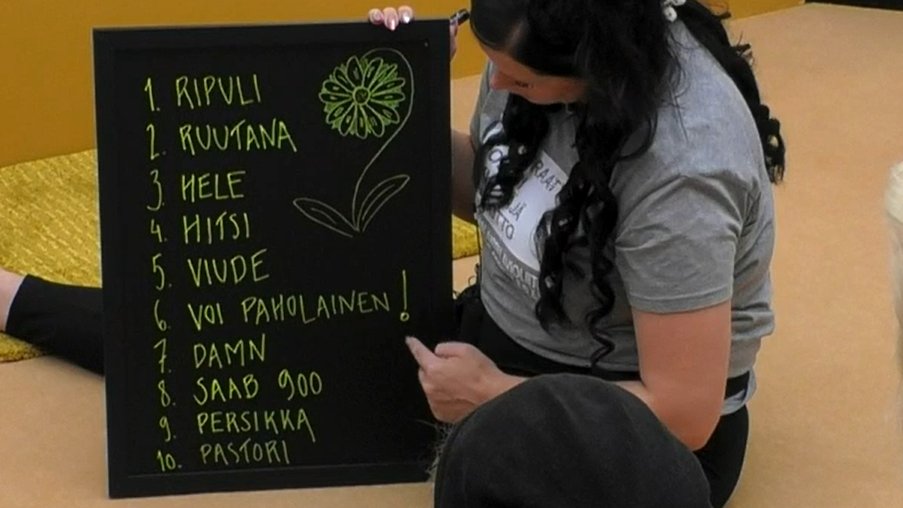 1. RIPULI
2. RUUTANA
3. HELE
4. HITSI
5. VIUDE
6. VOI PAHOLAINEN!
7. DAMN
8. SAAB 900
9. PERSIKKA
10. PASTORI